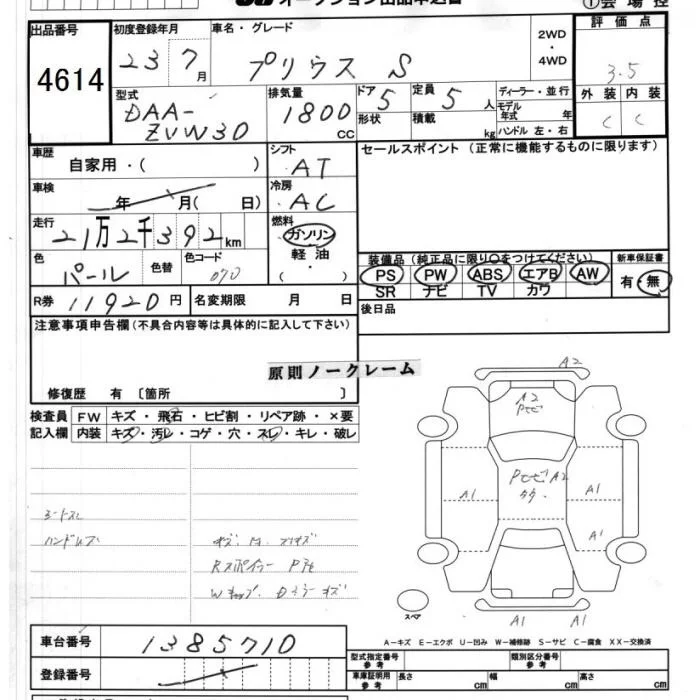 オークション出品申込書
①会場控
出品番号 初度登録年月 車名・グレード 2WD・4WD 評価点
4614 23 7月 プリウス S 3.5
外装 内装
C C
型式 排気量 ドア 定員 ディーラー・並行
DAA-ZVW30 1800 CC 5 5人 モデル年式 年
形状 積載 kg ハンドル 左・右
車歴 シフト セールスポイント (正常に機能するものに限ります)
自家用・( ) AT
車検 冷房
年 月( 日) AC
走行 燃料
21万2千392km ガソリン
軽油
( ・ )
色 色替 色コード 装備品 (純正品に限り○をつけてください) 新車保証書
パール 070 PS PW ABS エアB AW 有・無
SR ナビ TV カワ
R券 11920円 名変期限 月 日 後日品
注意事項申告欄(不具合内容等は具体的に記入して下さい)
原則ノークレーム
修復歴 有 〔箇所 〕
検査員 FW キズ・飛石・ヒビ割・リペア跡・×要
記入欄 内装 キズ・汚レ・コゲ・穴・スレ・キレ・破レ
A2
A2
Pトビ
PトビA2
A1 A1
A1
シートスレ
ハンドルスレ
Rスポイラー
スペア A1 A1
A-キズ E-エクボ U-凹み W-補修跡 S-サビ C-腐食 XX-交換済
車台番号 1385710
登録番号
型式指定番号 参考 類別区分番号 参考
車庫証明用 参考 長さ cm 幅 cm 高さ cm